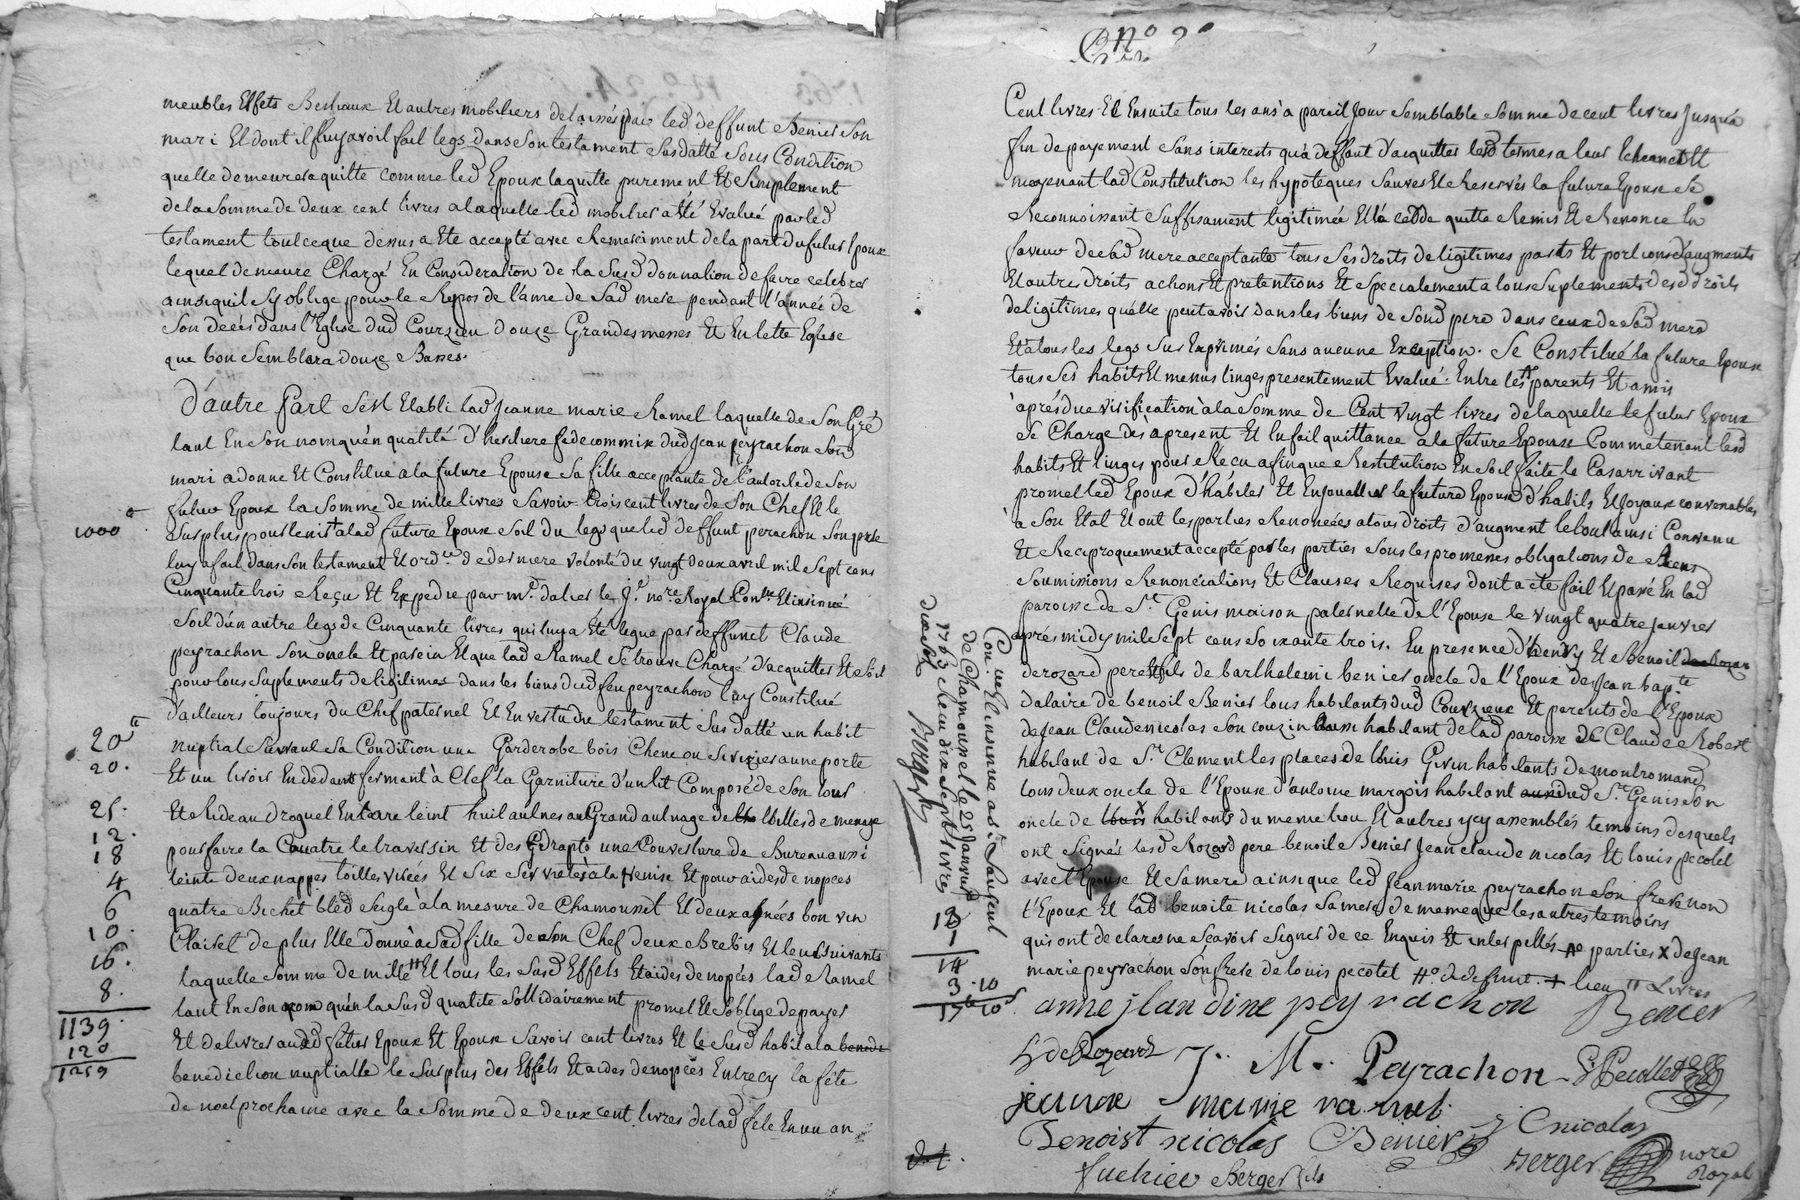 meubles Effets Bestiaux Et autres mobiliers delaissés par led deffunt Benier son
mari Et dont il luy avoit fait legs dans son testament susdatté sous Condition
quelle demeurera quitte comme led Epoux la quitte purement Et Simplement
de la somme de deux cent livres a laquelle led mobilier a été Evalué par led
testament tout ce que dessus a ete accepté avec Remerciment de la part du futur Epoux
lequel demeure Chargé En Consideration de la susd donnation de faire celebrer
ainsi quil sy oblige pour le Repos de l'ame de Sad mere pendant l'année de
son decés dans l'Eglise dud Courzieu douze Grandes messes Et En lette Eglise
que bon Semblera douze Basses.
D'autre part s'est Etabli lad Jeanne marie Ramel laquelle de Son Gré
tant En Son nom qu'en qualité d'heritiere fideicommix dud Jean peyrachon Son
mari a donné Et Constitué a la future Epouse Sa fille acceptante de l'autorité de son
futur Epoux la Somme de mille livres Savoir trois cent livres de Son Chef Et le
1000lt
Surplus pour tenir a lad future Epouse soit du legs que led deffunt perachon Son pere
luy a fait dans Son testament Et ord.ce de derniere volonté du vingt deux avril mil Sept cens
Cinquante trois Reçu Et Expedié par m.e dalier le J.e no.re Royal Con.lle Et insinué
Soit d'un autre legs de Cinquante livres qui luy a été legué par deffunct Claude
peyrachon Son oncle Et parein Et que lad Ramel Se trouve Chargé d'acquitter Et Soit
pour tous Suplements de ligitimes dans les biens dud feu peyrachon luy Constitué
d'ailleurs toujours du Chef paternel Et En vertu du testament Sus datté un habit
20lt
nuptial Suivant Sa Condition une Garderobe bois Chene ou Serizier a une porte
20.
Et un tiroir En dedans fermant à Clef la Garniture d'un lit Composé de Son tour
25.
Et Rideau droguet Entoare teint huit aulnes au Grand aulnage de toilles de menage
12.
pour faire la Couatre le traversin Et des Gdrapts une Couverture de Bureau aussi
18
teinte deux nappes toilles virées Et Six Serviettes à la Venise Et pour aides de nopces
4
quatre Bichet bled Seigle à la mesure de Chamousset Et deux asnées bon vin
6
10.
Clairet de plus Elle donne a sad fille de son Chef deux Brebis Et leurs Suivants
16.
laquelle Somme de mille # Et tous les Susd Effets Et aides de nopces lad Ramel
8.
tant En Son nom qu'en la Susd qualité Sollidairement promet Et S'oblige de payer
1139.
Et delivrer auxd futurs Epoux Et Epouse Savoir cent livres Et le Susd habit a la benedi
120
benediction nuptialle le Surplus des Effets Et aides de nopces Entrecy la fête
1259
de noel prochaine avec la Somme de deux cent livres de lad fete En un an
N° 2e
Cent livres Et Ensuite tous les ans a pareil Jour Semblable Somme de cent livres Jusqu'a
fin de payement Sans interests qu'a deffaut d'acquitter lesd termes a leur Echeance Et
moyenant lad Constitution les hypoteques Sauves Et Reservés la future Epouse Se
Reconnoissant Suffisament legitimée Et la cedde quitte Remis Et Renonce En
faveur de sad mere acceptante tous Ses droits de ligitimes parts Et portions d'augments
Et autres droits actions Et pretentions Et Specialement a tous Suplements desd droits
de ligitimes qu'elle peut avoir dans les biens de Sond pere dans ceux de Sad mere
Et a tous les legs Sus Exprimés Sans aucune Exception. Se Constitue la future Epouse
tous Ses habits Et menus linges presentement Evalué Entre les parties parents Et amis
aprés due verification à la Somme de Cent vingt livres de laquelle le futur Epoux
Se Charge dés à present Et En fait quittance a la future Epouse Comme tenant lesd
habits Et linges pour Reçu afin que Restitution En Soit faite le Cas arrivant
promet led Epoux d'habiler Et Enjoualler la future Epouse d'habits Et Joyaux convenables
à Son Etat Et ont les parties Renoncées a tous droits d'augment le tout ainsi Convenu
Et Reciproquement accepté par les parties Sous les promesses obligations de Biens
Soumissions Renonciations Et Clauses Requises dont acte fait Et passé En lad
paroisse de S.t Genis maison paternelle de l'Epouse le vingt quatre Janvier
aprés midy mil Sept cens Soixante trois. En presence d'henry Et Benoit
derozard pere Et fils de barthelemi benier oncle de l'Epoux de Jean bap.te
dalaire de benoit Benier tous habitants dud Courzieux Et parents de l'Epoux
de Jean Claude nicolas Son couzin habitant de lad paroisse de Claude Robert
habitant de S.t Clement les places de louis Givin habitants de montromand
tous deux oncle de l'Epoux d'antoine margois habitant aud S.t Genis Son
oncle de louis x habitants du meme lieu Et autres y cy assemblés temoins desquels
ont Signés lesd Rozard pere benoit Benier Jean claude nicolas Et louis pecolet
avec l'Epouse Et Sa mere ainsi que led Jean marie peyrachon Son frere non
l'Epoux Et lad benoite nicolas Sa mere de meme que les autres temoins
qui ont declaré ne Scavoir Signer de ce Enquis Et interpellés # parties x de Jean
marie peyrachon Son frere de louis pecotet #o dud defunt + lieu # Livres
Con.lé Et insinué a S.t Laurent
de Chamousset le 25 Janvier
1763 Recu dix Sept livres
dix Sols
Berger
13
1
14
3.10
17lt 10s
anne flandine peyrachon Benier
h deRozard J. M. Peyrachon L Pecollet
jeanne marie ramel
Benoist nicolas C Benier J Cnicolas
fuchier Berger fils Berger nore Royal